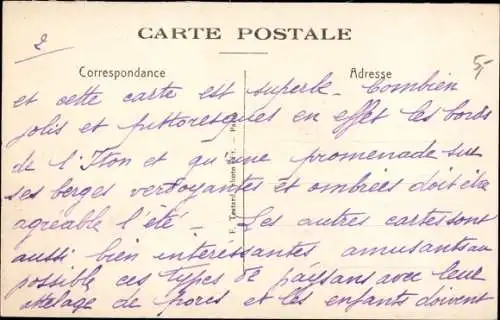 2
CARTE POSTALE
Correspondance
Adresse
5,-
et cette carte est superbe - Combien
jolis et pittoresques en effet les bords
de l'Iton et qu'une promenade sur
ses berges verdoyantes et ombrées doit être
agréable l'été - Les autres cartes sont
aussi bien intéressantes amusants au
possible ces types de paysans avec leur
attelage de porcs et les enfants doivent
E. Testard, photo-édit. - Pa